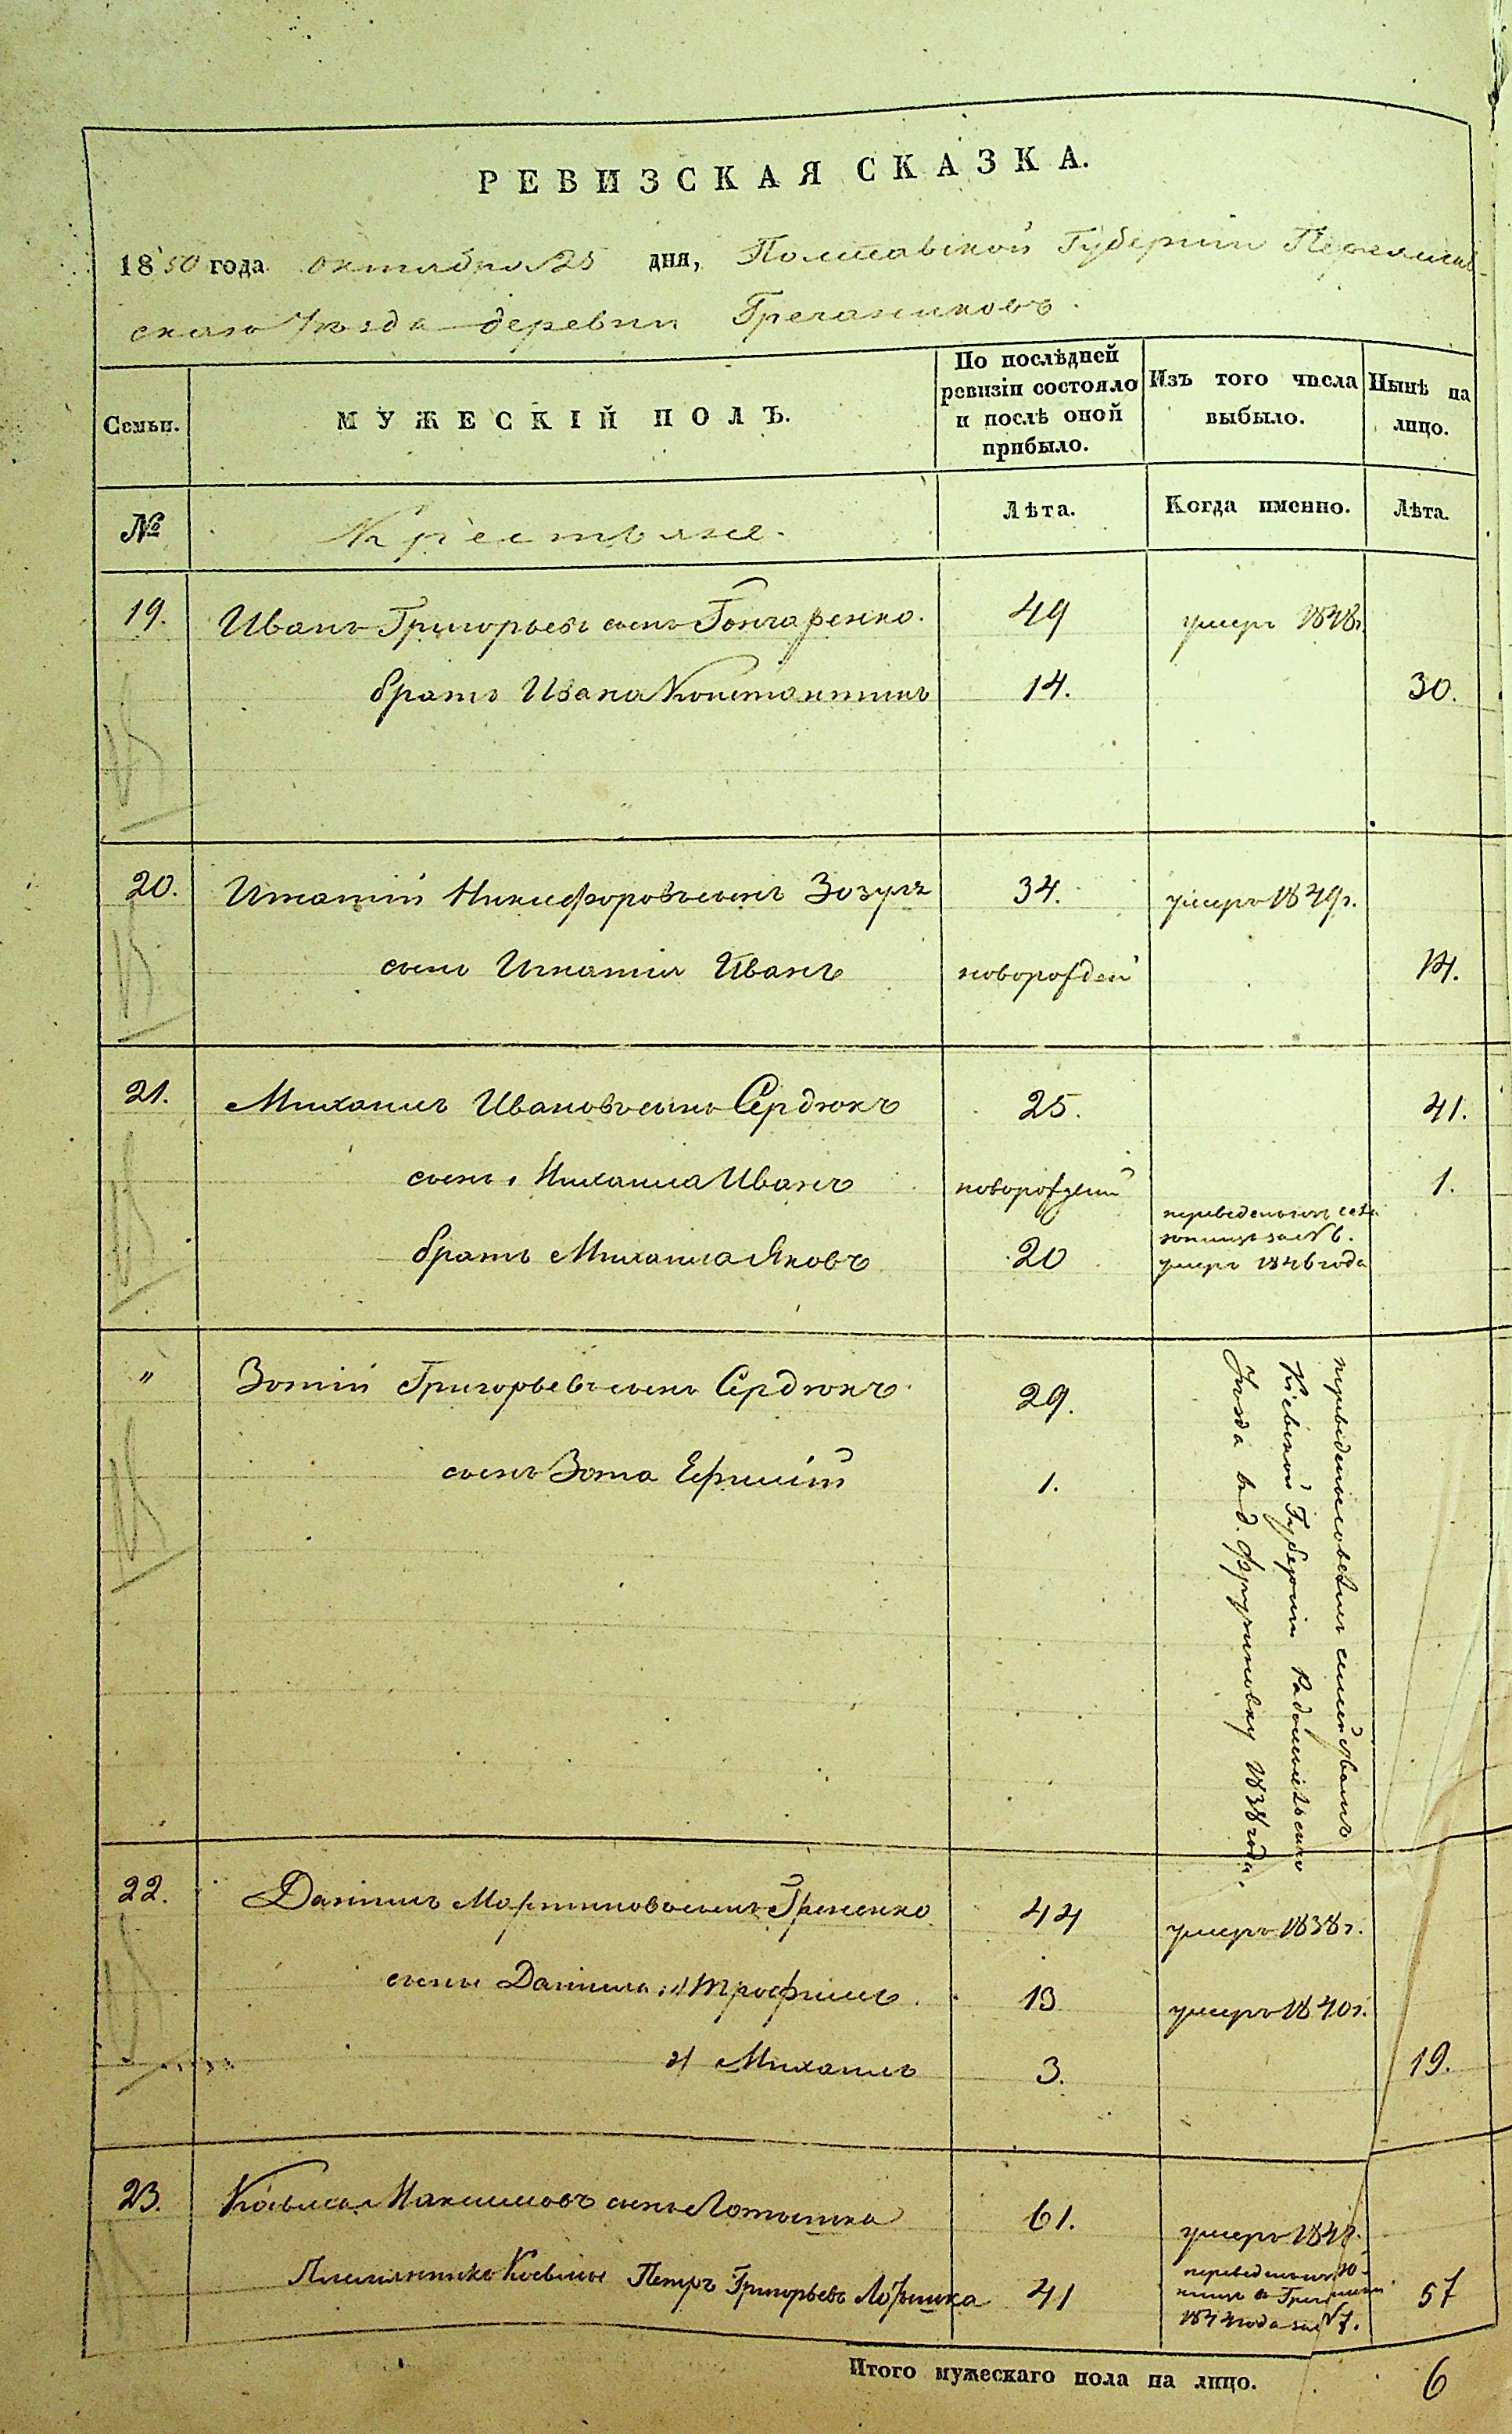 РЕВИЗСКАЯ СКАЗКА.
1850 года октября 25 дня, Полтавской Губернии Переяслав-
скаго Уѣзда деревни Гречаниковъ.
Семьи.
МУЖЕСКІЙ ПОЛЪ.
По послѣдней ревизіи состояло и послѣ оной прибыло.
Изъ того числа выбыло.
Нынѣ на лицо.
№
Крестьяне.
Лѣта.
Когда именно.
Лѣта.
19. Иванъ Григорьевъ сынъ Гончаренко. 49 умеръ 1848г.
братъ Ивана Константинъ 14. 30.
20. Игнатій Никифоровъ сынъ Зозуля 34. умеръ 1849г.
сынъ Игнатія Иванъ новорожден 14.
21. Михаилъ Ивановъ сынъ Сердюкъ 25. 41.
сынъ Михаила Иванъ новорожденій 1.
братъ Михаила Яковъ 20 умеръ 1846 года
" Зотій Григорьевъ сынъ Сердюкъ 29.
сынъ Зота 1.
Кіевской Губерніи Радомысльскаго
Уѣзда в д. 1838 года.
22. Даніилъ Мартиновъ сынъ 44 умеръ 1838г.
сыны Даніила 1) Трофимъ 13 умеръ 1840г.
2) Михаилъ 3. 19.
23. Косьма Максимовъ сынъ 61. умеръ
Племянникъ Косьмы Петръ Григорьевъ 41 57
Итого мужескаго пола на лицо. 6